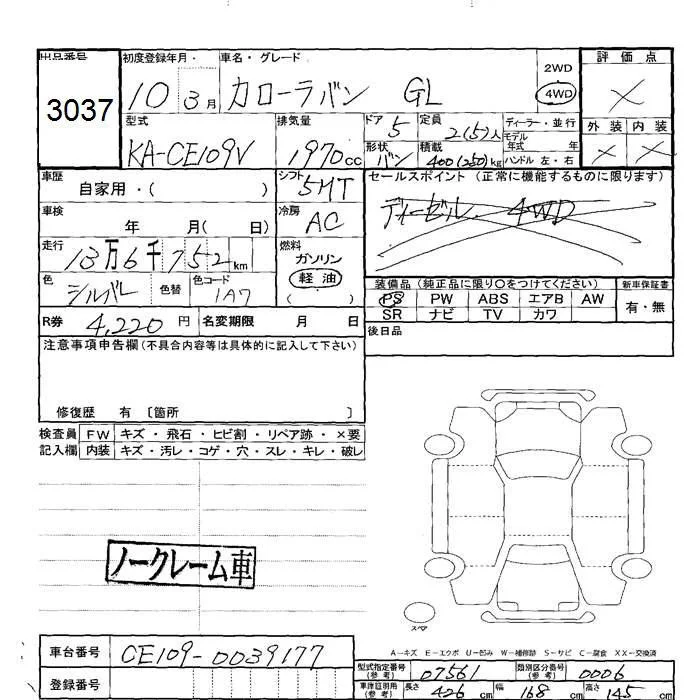 出品番号
3037
初度登録年月.
10 3月
車名・グレード
カローラバン GL
2WD
4WD
評価点
×
型式
KA-CE109V
排気量
1970cc
ドア 5
定員 2(5)人
ディーラー・並行
モデル年式 年
形状 バン
積載 400(250)kg
ハンドル 左・右
外装 内装
× ×
車歴
自家用・( )
シフト 5MT
セールスポイント(正常に機能するものに限ります)
ディーゼル 4WD
車検
年 月( 日)
冷房 AC
走行
13万6千752km
燃料
ガソリン
軽油
( )
色 シルバー 色替 色コード 1A7
装備品(純正品に限り○をつけてください)
新車保証書
PS PW ABS エアB AW
有・無
SR ナビ TV カワ
R券 4,220円 名変期限 月 日
後日品
注意事項申告欄(不具合内容等は具体的に記入して下さい)
修復歴 有 〔箇所 〕
検査員 FW キズ・飛石・ヒビ割・リペア跡・×要
記入欄 内装 キズ・汚レ・コゲ・穴・スレ・キレ・破レ
ノークレーム車
スペア
A-キズ E-エクボ U-凹み W-補修跡 S-サビ C-腐食 XX-交換済
車台番号 CE109-0039177
登録番号
型式指定番号(参考) 07561 類別区分番号(参考) 0006
車庫証明用(参考) 長さ 426cm 幅 168cm 高さ 145cm